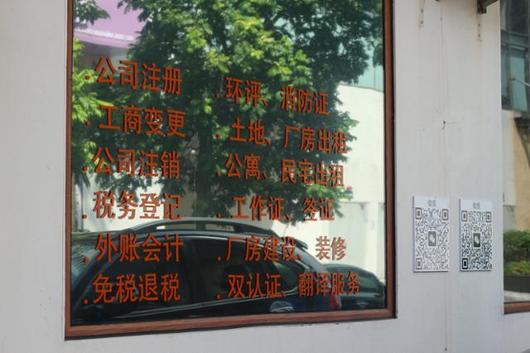 公司注册
工商变更
公司注销
税务登记
外账会计
免税退税
环评、消防证
土地、厂房出租
公寓、民宅出租
工作证、签证
厂房建设、装修
双认证、翻译服务